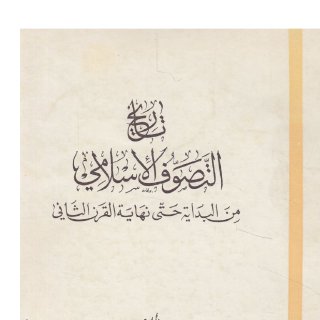 تاريخ
التَّصَوُّف الإسلامي
مِنَ البداية حَتَّى نهاية القرن الثاني